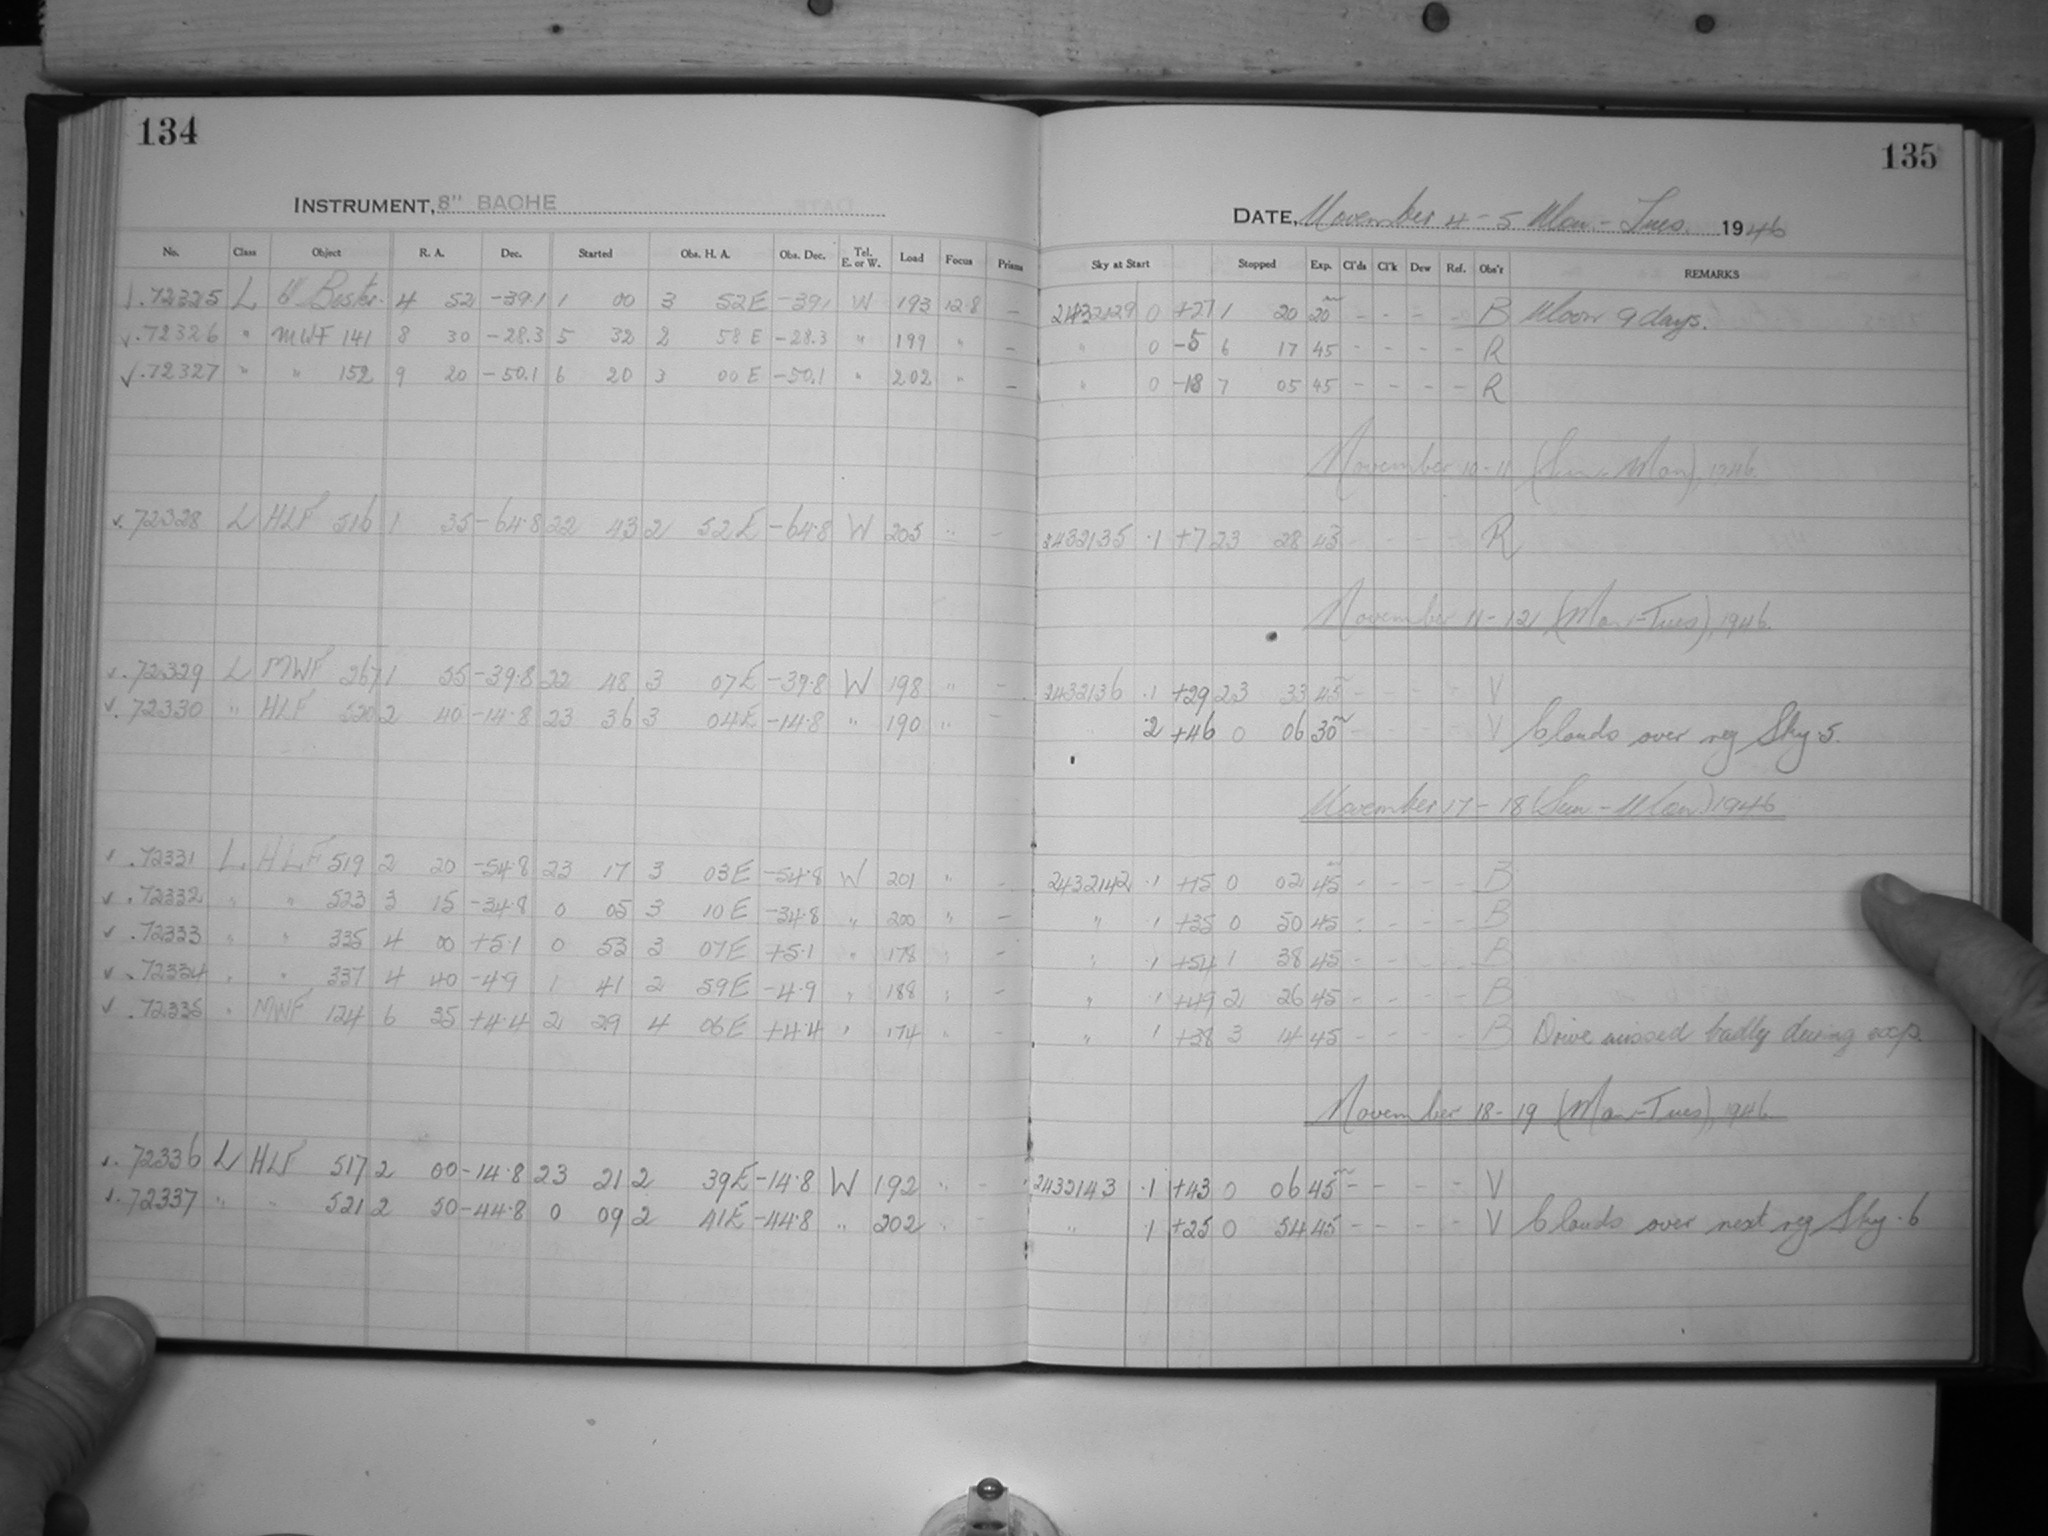 134
INSTRUMENT, 8" BACHE
No. Class Object R. A. Dec. Started Obs. H. A. Obs. Dec. Tel. E. or W. Load Focus Prisms
.72325 L 4 52 -39.1 1 00 3 52E -39.1 W 193 12.8 -
.72326 " MWF 141 8 30 -28.3 5 32 2 58E -28.3 " 199 " -
.72327 " " 152 9 20 -50.1 6 20 3 00E -50.1 " 202 " -
.72328 L HLF 516 1 35 -64.8 22 43 2 52E -64.8 W 205 " -
.72329 L MWF 267 1 55 -39.8 22 48 3 07E -39.8 W 198 " -
.72330 " HLF 520 2 40 -14.8 23 36 3 04E -14.8 " 190 " -
.72331 L HLF 519 2 20 -54.8 23 17 3 03E -54.8 W 201 " -
.72332 " " 523 3 15 -34.8 0 05 3 10E -34.8 " 200 " -
.72333 " " 335 4 00 +5.1 0 53 3 07E +5.1 " 178 " -
.72334 " " 337 4 40 -4.9 1 41 2 59E -4.9 " 188 " -
.72335 " MWF 124 6 35 +4.4 2 29 4 06E +4.4 " 174 " -
.72336 L HLF 517 2 00 -14.8 23 21 2 39E -14.8 W 192 " -
.72337 " " 521 2 50 -44.8 0 09 2 41E -44.8 " 202 " -
135
DATE, November 4-5 Mon.-Tues. 1946
Sky at Start Stopped Exp. Cl'ds Cl'k Dew Ref. Obs'r REMARKS
2432129 0 +27 1 20 20 - - - - B Moon 9 days.
" 0 -5 6 17 45 - - - - R
" 0 -18 7 05 45 - - - - R
November 10-11 (Sun-Mon), 1946.
2432135 .1 +7 23 28 - - - - R
November 11-12 (Mon-Tues), 1946.
2432136 .1 +29 23 33 45 - - - - V
2 +46 0 06 30 - - - - V Clouds over reg Sky.5.
November 17-18 (Sun-Mon) 1946
2432142 .1 +15 0 02 45 - - - - B
" .1 +35 0 50 45 - - - - B
" .1 +54 1 38 45 - - - - B
" 1 +49 2 26 45 - - - - B
" 1 +38 3 14 45 - - - - B Drive missed badly during exp.
November 18-19 (Mon-Tues), 1946.
2432143 .1 +43 0 06 45 - - - - V
" 1 +25 0 54 45 - - - - V Clouds over next reg Sky.6